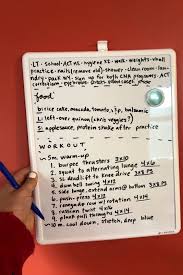 · LT · School · ACT HZ · hygiene HZ · Walk · weights · small
practice · nails (remove old) · shower · clean room · laun-
dry · pack · sign up for both CNA programs · ACT
"food"
b: rice cake, avocado, tomato, , balsamic
L: left-over quinoa (chris veggies?)
S: applesauce, protein shake after practice
WORKOUT
~5m warm-up
1. burpee thrusters 3x10
2. squat to alternating lunge 4x6
3. SL deadlift to knee drive 3x8
4. dumbbell swing 4x12
5. side lunge, extend arms @ bottom 3x8
6. renegade row w/ rotation 4x14
7. russian twist 4x16
8. plank pull through 4x14
~10 m. cool down, stretch, deep